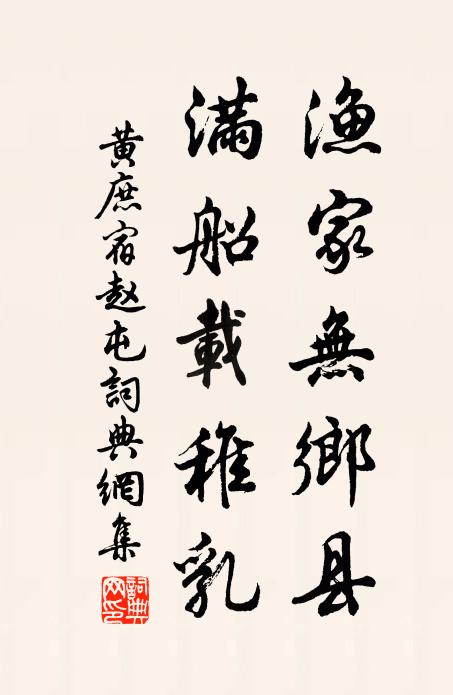 漁家無鄉县
滿船載稚乳
黄庶宿赵屯詞典網集
詞典網印